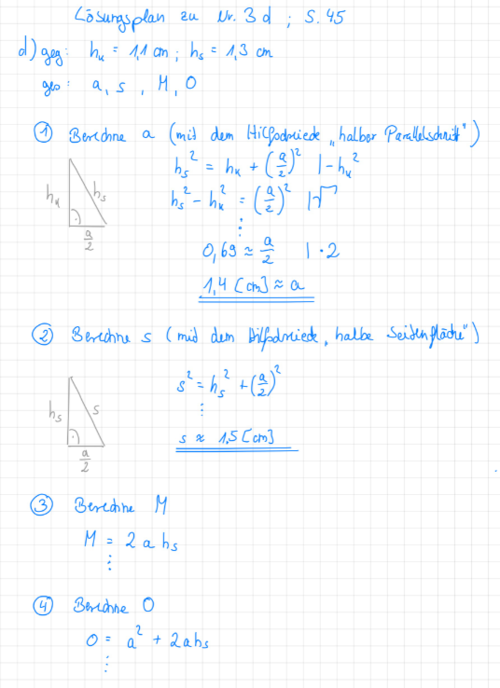 Lösungsplan zu Nr. 3 d ; S. 45
d) geg: hₖ = 1,1 cm ; hₛ = 1,3 cm
ges: a, s, M, O
① Berechne a (mit dem Hilfsdreieck „halber Parallelschnitt")
hₖ hₛ a/2
hₛ² = hₖ + (a/2)² | -hₖ²
hₛ² - hₖ² = (a/2)² | √
⋮
0,69 ≈ a/2 | · 2
1,4 [cm] ≈ a
② Berechne s (mit dem Hilfsdreieck „halbe Seitenfläche")
hₛ s a/2
s² = hₛ² + (a/2)²
⋮
s ≈ 1,5 [cm]
③ Berechne M
M = 2 a hₛ
⋮
④ Berechne O
O = a² + 2ahₛ
⋮